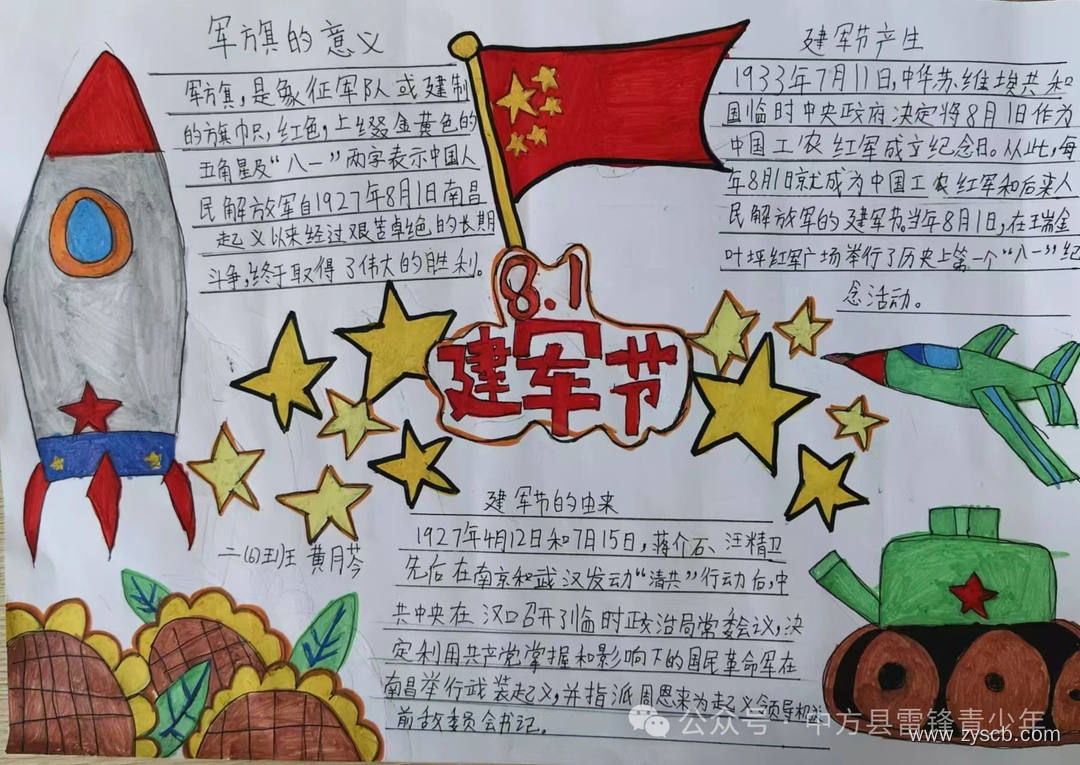 军旗的意义
军旗,是象征军队或建制
的旗帜,红色,上缀金黄色的
五角星及“八一”两字表示中国人
民解放军自1927年8月1日南昌
起义以来经过艰苦卓绝的长期
斗争,终于取得了伟大的胜利。
建军节产生
1933年7月11日,中华苏维埃共和
国临时中央政府决定将8月1日作为
中国工农红军成立纪念日。从此,每
年8月1日就成为中国工农红军和后来人
民解放军的建军节。当年8月1日,在瑞金
叶坪红军广场举行了历史上第一个“八一”纪
念活动。
8.1
建军节
建军节的由来
1927年4月12日和7月15日,蒋介石、汪精卫
先后在南京和武汉发动“清共”行动后,中
共中央在汉口召开了临时政治局常委会议,决
定利用共产党掌握和影响下的国民革命军在
南昌举行武装起义,并指派周恩来为起义领导机
前敌委员会书记。
二(6)班 黄月芩
公众号 中方县雷锋青少年
www.zyscb.com